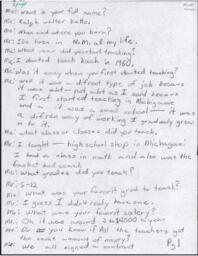 Me: What is your full name?
Mr: Ralph Walter Kallo.
Me: When and where you born?
Mr: I've been in all my life.
Me: What year did you start teaching?
Mr: I started teach back in 1960.
Me: Was it easy when you first started teaching?
Mr: Well it was a different type of job because
it was not as I said because
I first started teaching in
and a it was a small school it was
a diffren way of working I grew
to it.
Me: what class or classes did you teach.
Mr: I taught high school shop in
I had a class in math and also was the
basket ball coach
Me: What grades did you teach?
Mr: 5-12
Me: What was your favorit grad to teach?
Mr: I guess I didn't really have one.
Me: What were your favor salery?
Mr: Oh it was around a year
Me: Do you know if All the teachers got
the same amount of mony?
Mr: We all signed a contract
Pg 1